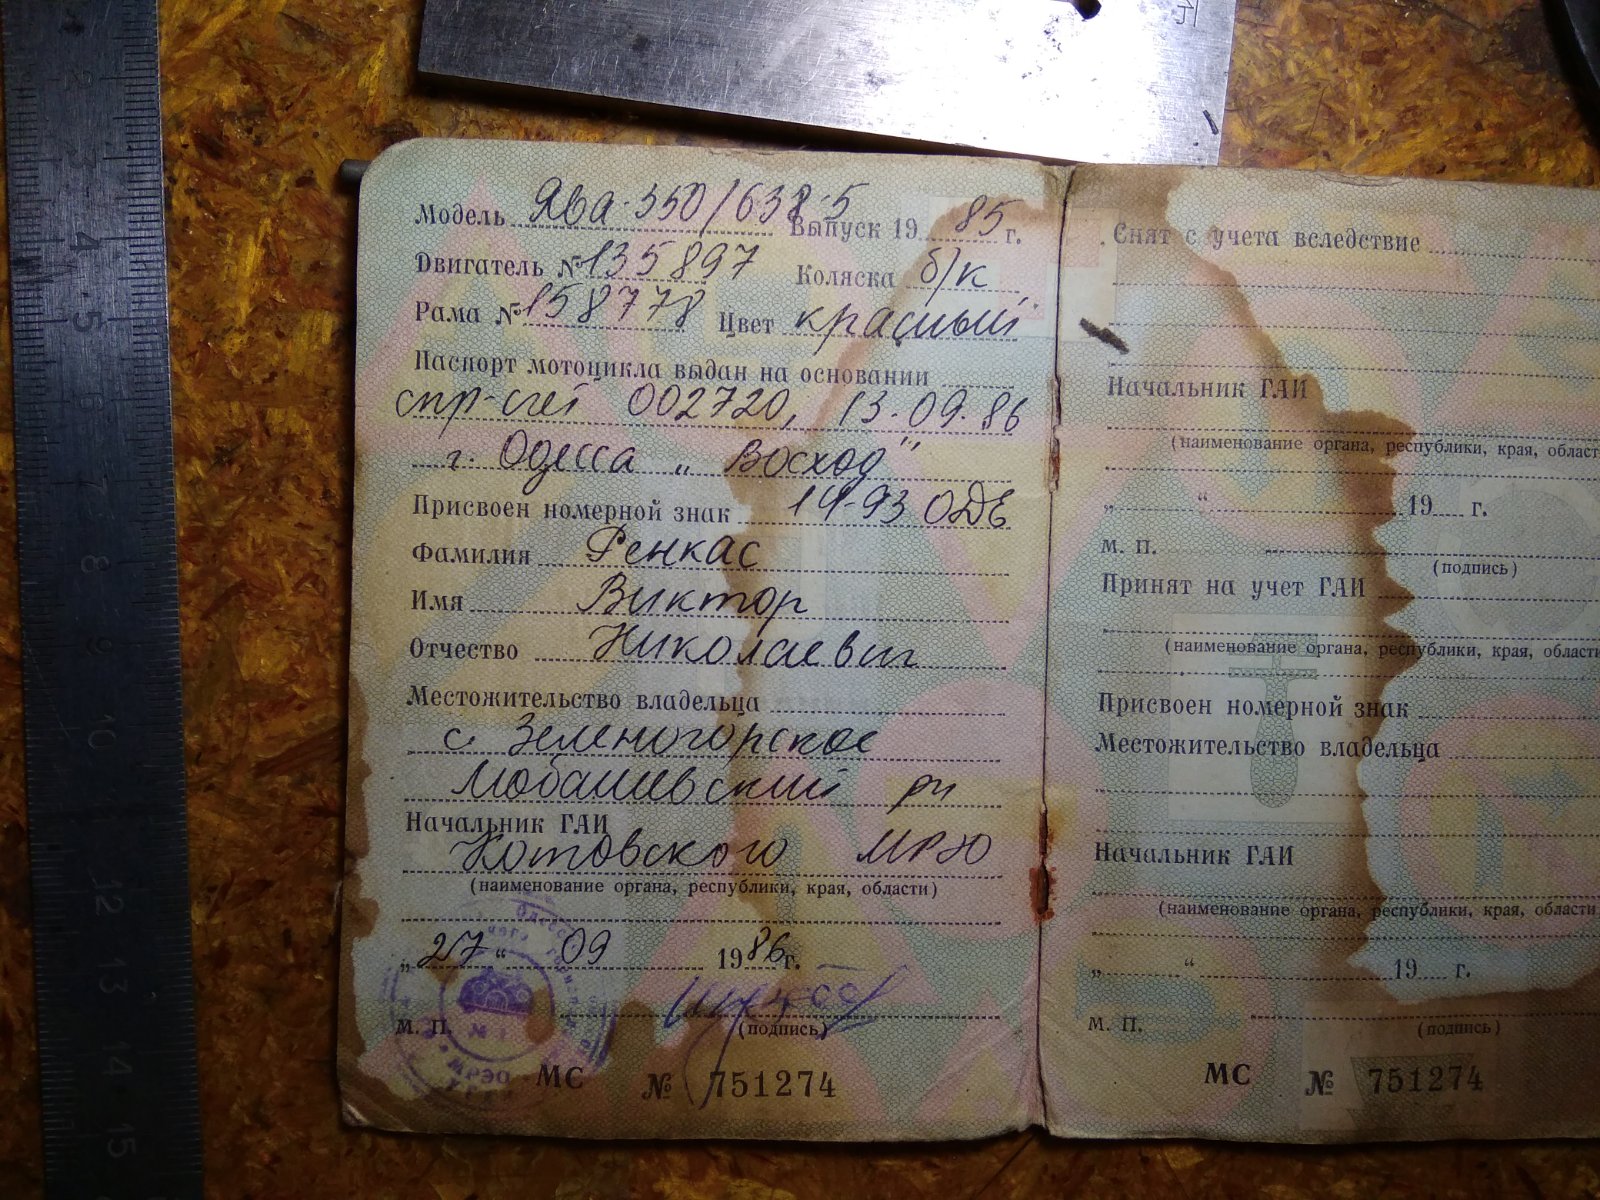 Модель Ява-350/638-5 Выпуск 1985 г.
Двигатель № 135897 Коляска б/к
Рама № 158778 Цвет красный
Паспорт мотоцикла выдан на основании
спр-счет 002720, 13.09.86
г. Одесса „Восход"
Присвоен номерной знак 14-93 ОДЕ
Фамилия Ренкас
Имя Виктор
Отчество Николаевич
Местожительство владельца
с. Зеленогорское
Любашевский рн
Начальник ГАИ
Котовского МРЭО
(наименование органа, республики, края, области)
„27" 09 1986 г.
М. П. (подпись)
МРЭО
МС № 751274
Снят с учета вследствие
Начальник ГАИ
(наименование органа, республики, края, област
„ " 19 г.
М. П.
(подпись)
Принят на учет ГАИ
(наименование органа, республики, края, област
Присвоен номерной знак
Местожительство владельца
Начальник ГАИ
(наименование органа, республики, края, област
„ " 19 г.
М. П. (подпись)
МС № 751274
2
3
4
5
7
8
9
10
12
13
14
15